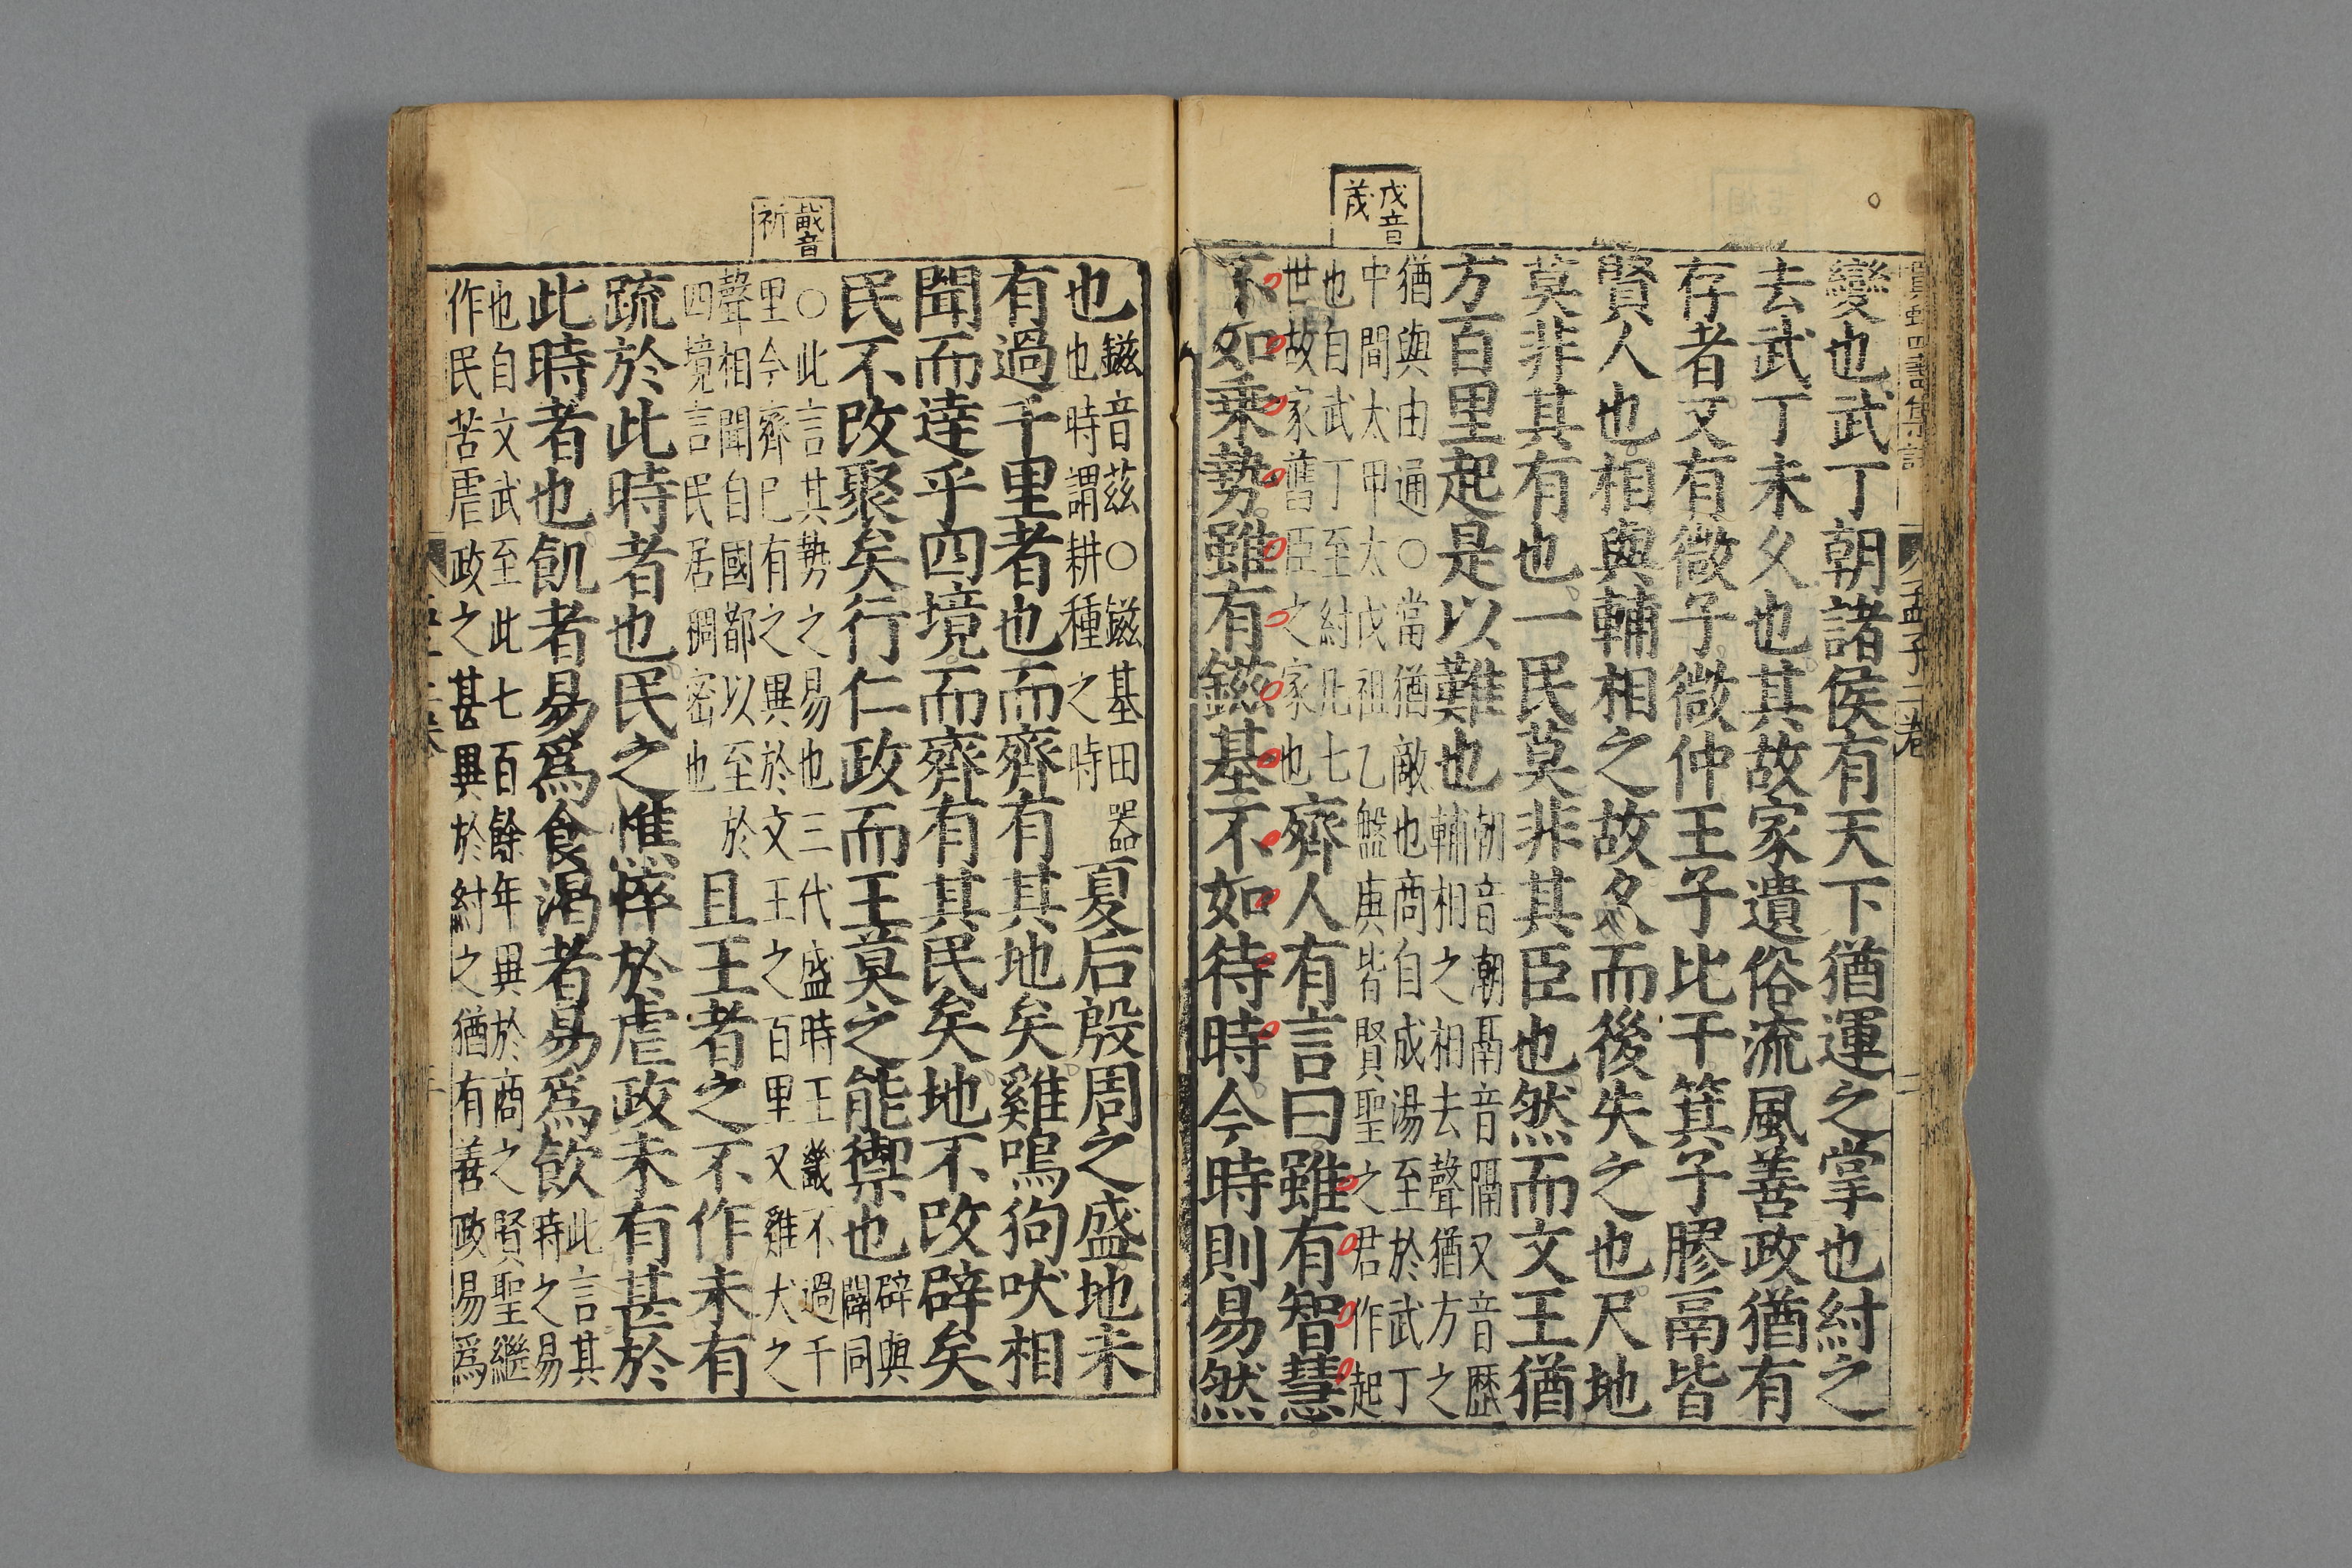 戊音
茂
變也武丁朝諸侯有天下猶運之掌也紂之
去武丁未久也其故家遺俗流風善政猶有
存者又有微子微仲王子比干箕子膠鬲皆
賢人也相與輔相之故久而後失之也尺地
莫非其有也一民莫非其臣也然而文王猶
方百里起是以難也
朝音潮鬲音隔又音歷
輔相之相去聲猶方之
猶與由通○當猶敵也商自成湯至於武丁
中間太甲太戊祖乙盤庚皆賢聖之君作起
也自武丁至紂凡七
世故家舊臣之家也
齊人有言曰雖有智慧
不如乗勢雖有鎡基不如待時今時則易然
孟子二卷
二
畿音
祈
也
鎡音茲○鎡基田器
也時謂耕種之時
夏后殷周之盛地未
有過千里者也而齊有其地矣雞鳴狗吠相
聞而逹乎四境而齊有其民矣地不改辟矣
民不改聚矣行仁政而王莫之能禦也
辟與
闢同
○此言其勢之易也三代盛時王畿不過千
里今齊已有之異於文王之百里又雞犬之
聲相聞自國都以至於
四境言民居稠密也
且王者之不作未有
疏於此時者也民之憔悴於虐政未有甚於
此時者也飢者易爲食渴者易爲飲
此言其
時之易
也自文武至此七百餘年異於商之賢聖繼
作民苦虐政之甚異於紂之猶有善政易爲